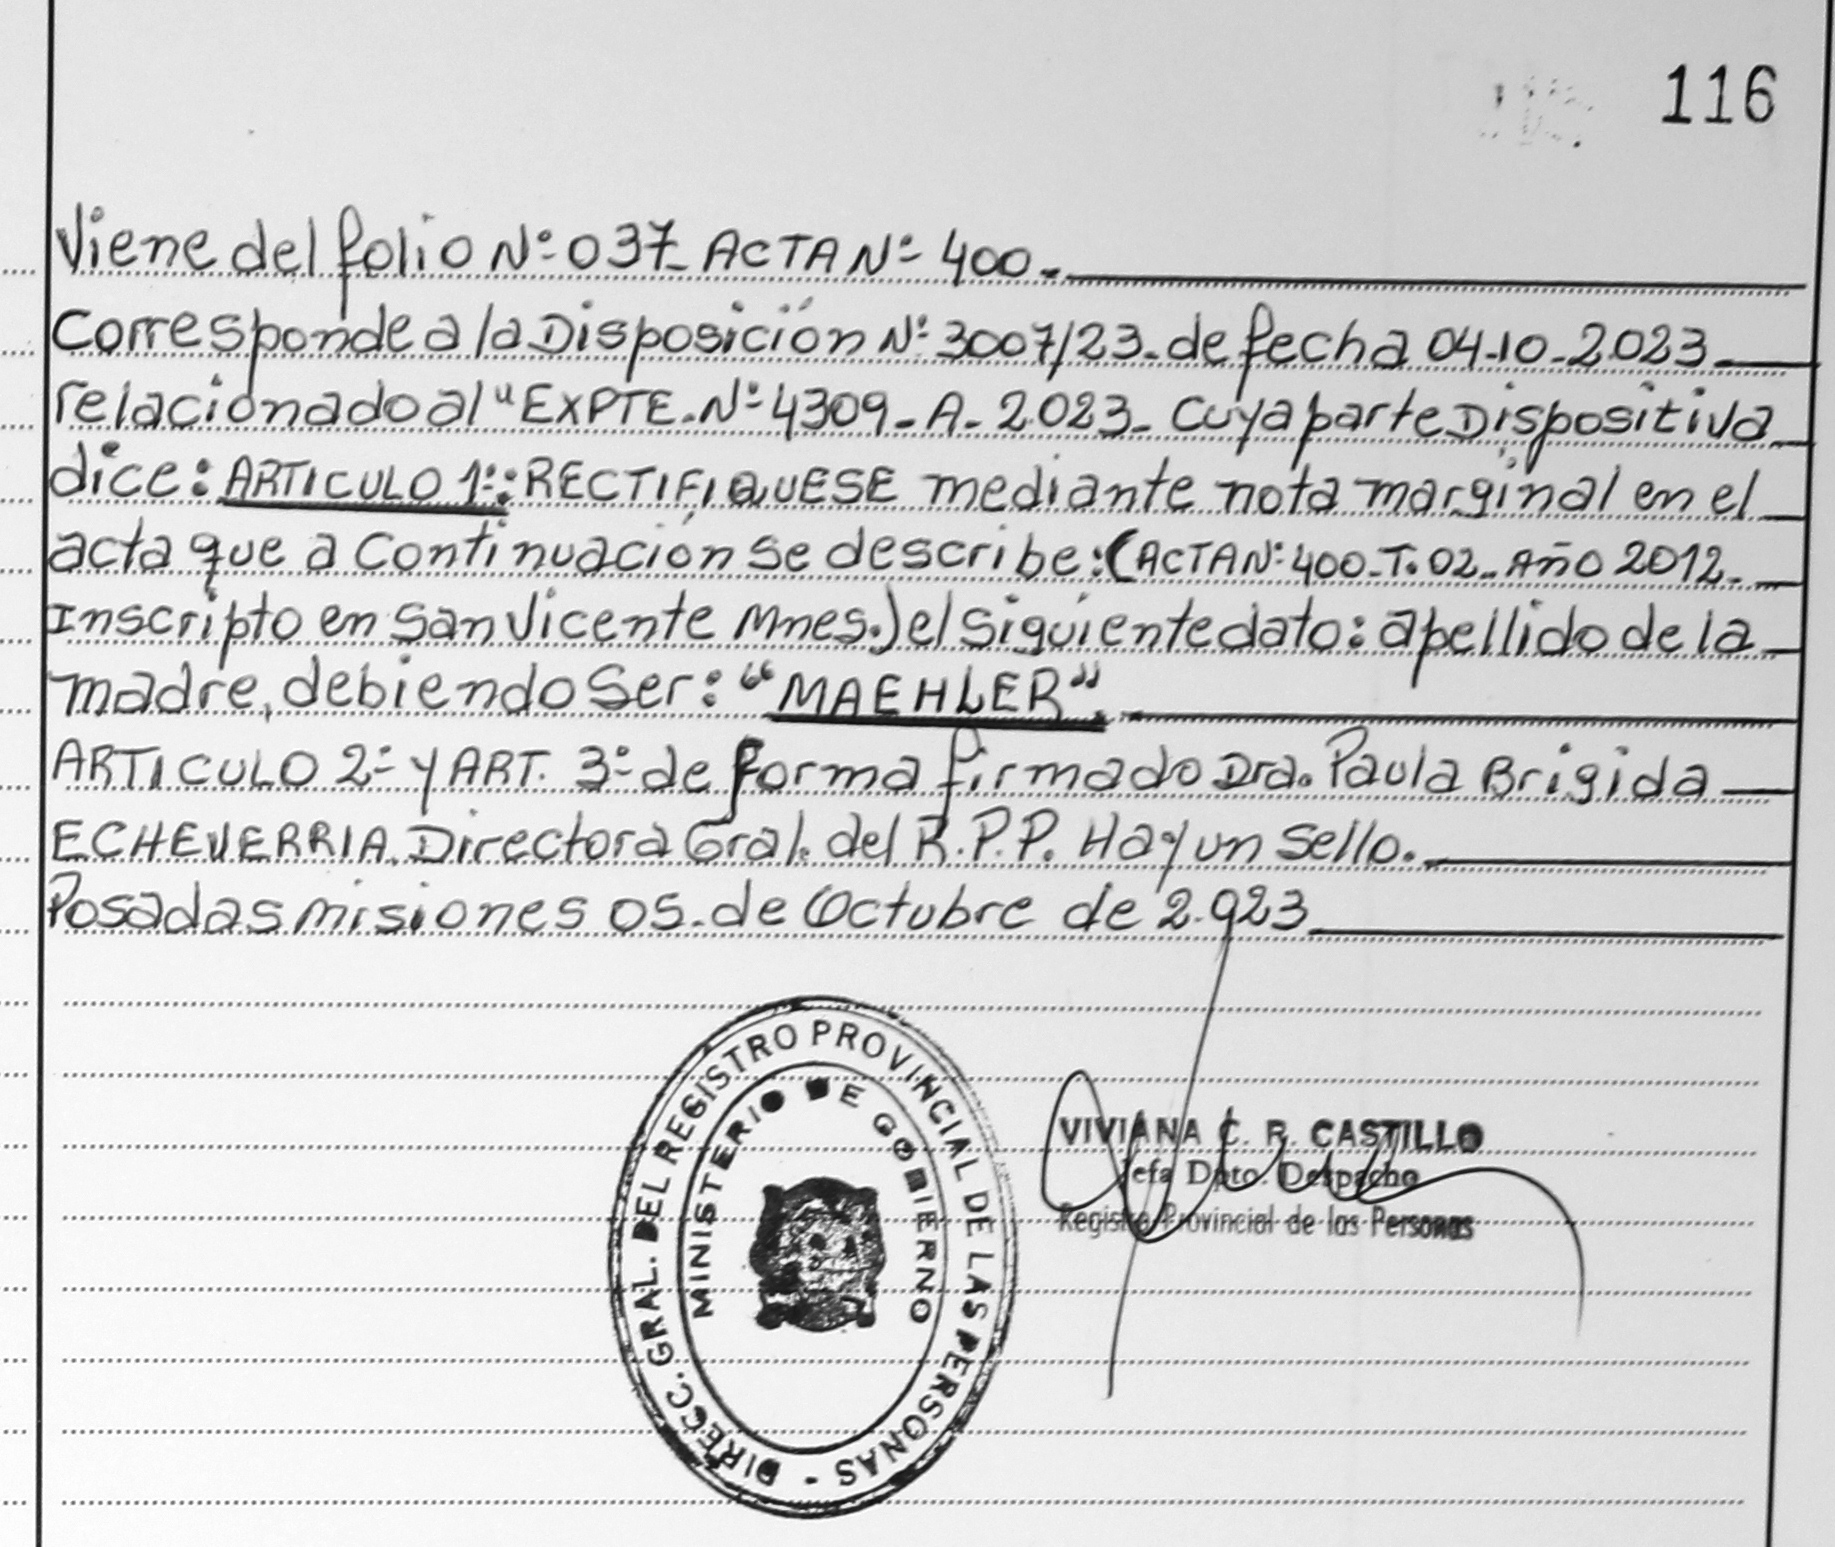 116
Viene del folio Nº 037_ ACTA Nº 400._
Corresponde a la Disposición Nº 3007/23_de fecha 04_10_2.023_
relacionado al "EXPTE_Nº 4309_A_2.023_ Cuya parte Dispositiva
dice: ARTICULO 1º: RECTIFIQUESE mediante nota marginal en el
acta que a Continuación se describe: (ACTA Nº 400_T.02_Año 2012_
Inscripto en San Vicente Mnes.) el siguiente dato: apellido de la
madre, debiendo Ser: "MAEHLER"
ARTICULO 2º y ART. 3º de forma firmado Dra. Paula Brigida
ECHEVERRIA. Directora Gral. del R.P.P. Hay un Sello.
Posadas Misiones 05_de Octubre de 2.923
DIRECC. GRAL. DEL REGISTRO PROVINCIAL DE LAS PERSONAS -
MINISTERIO DE GOBIERNO
VIVIANA C. R. CASTILLO
Jefa Dpto. Despacho
Registro Provincial de las Personas